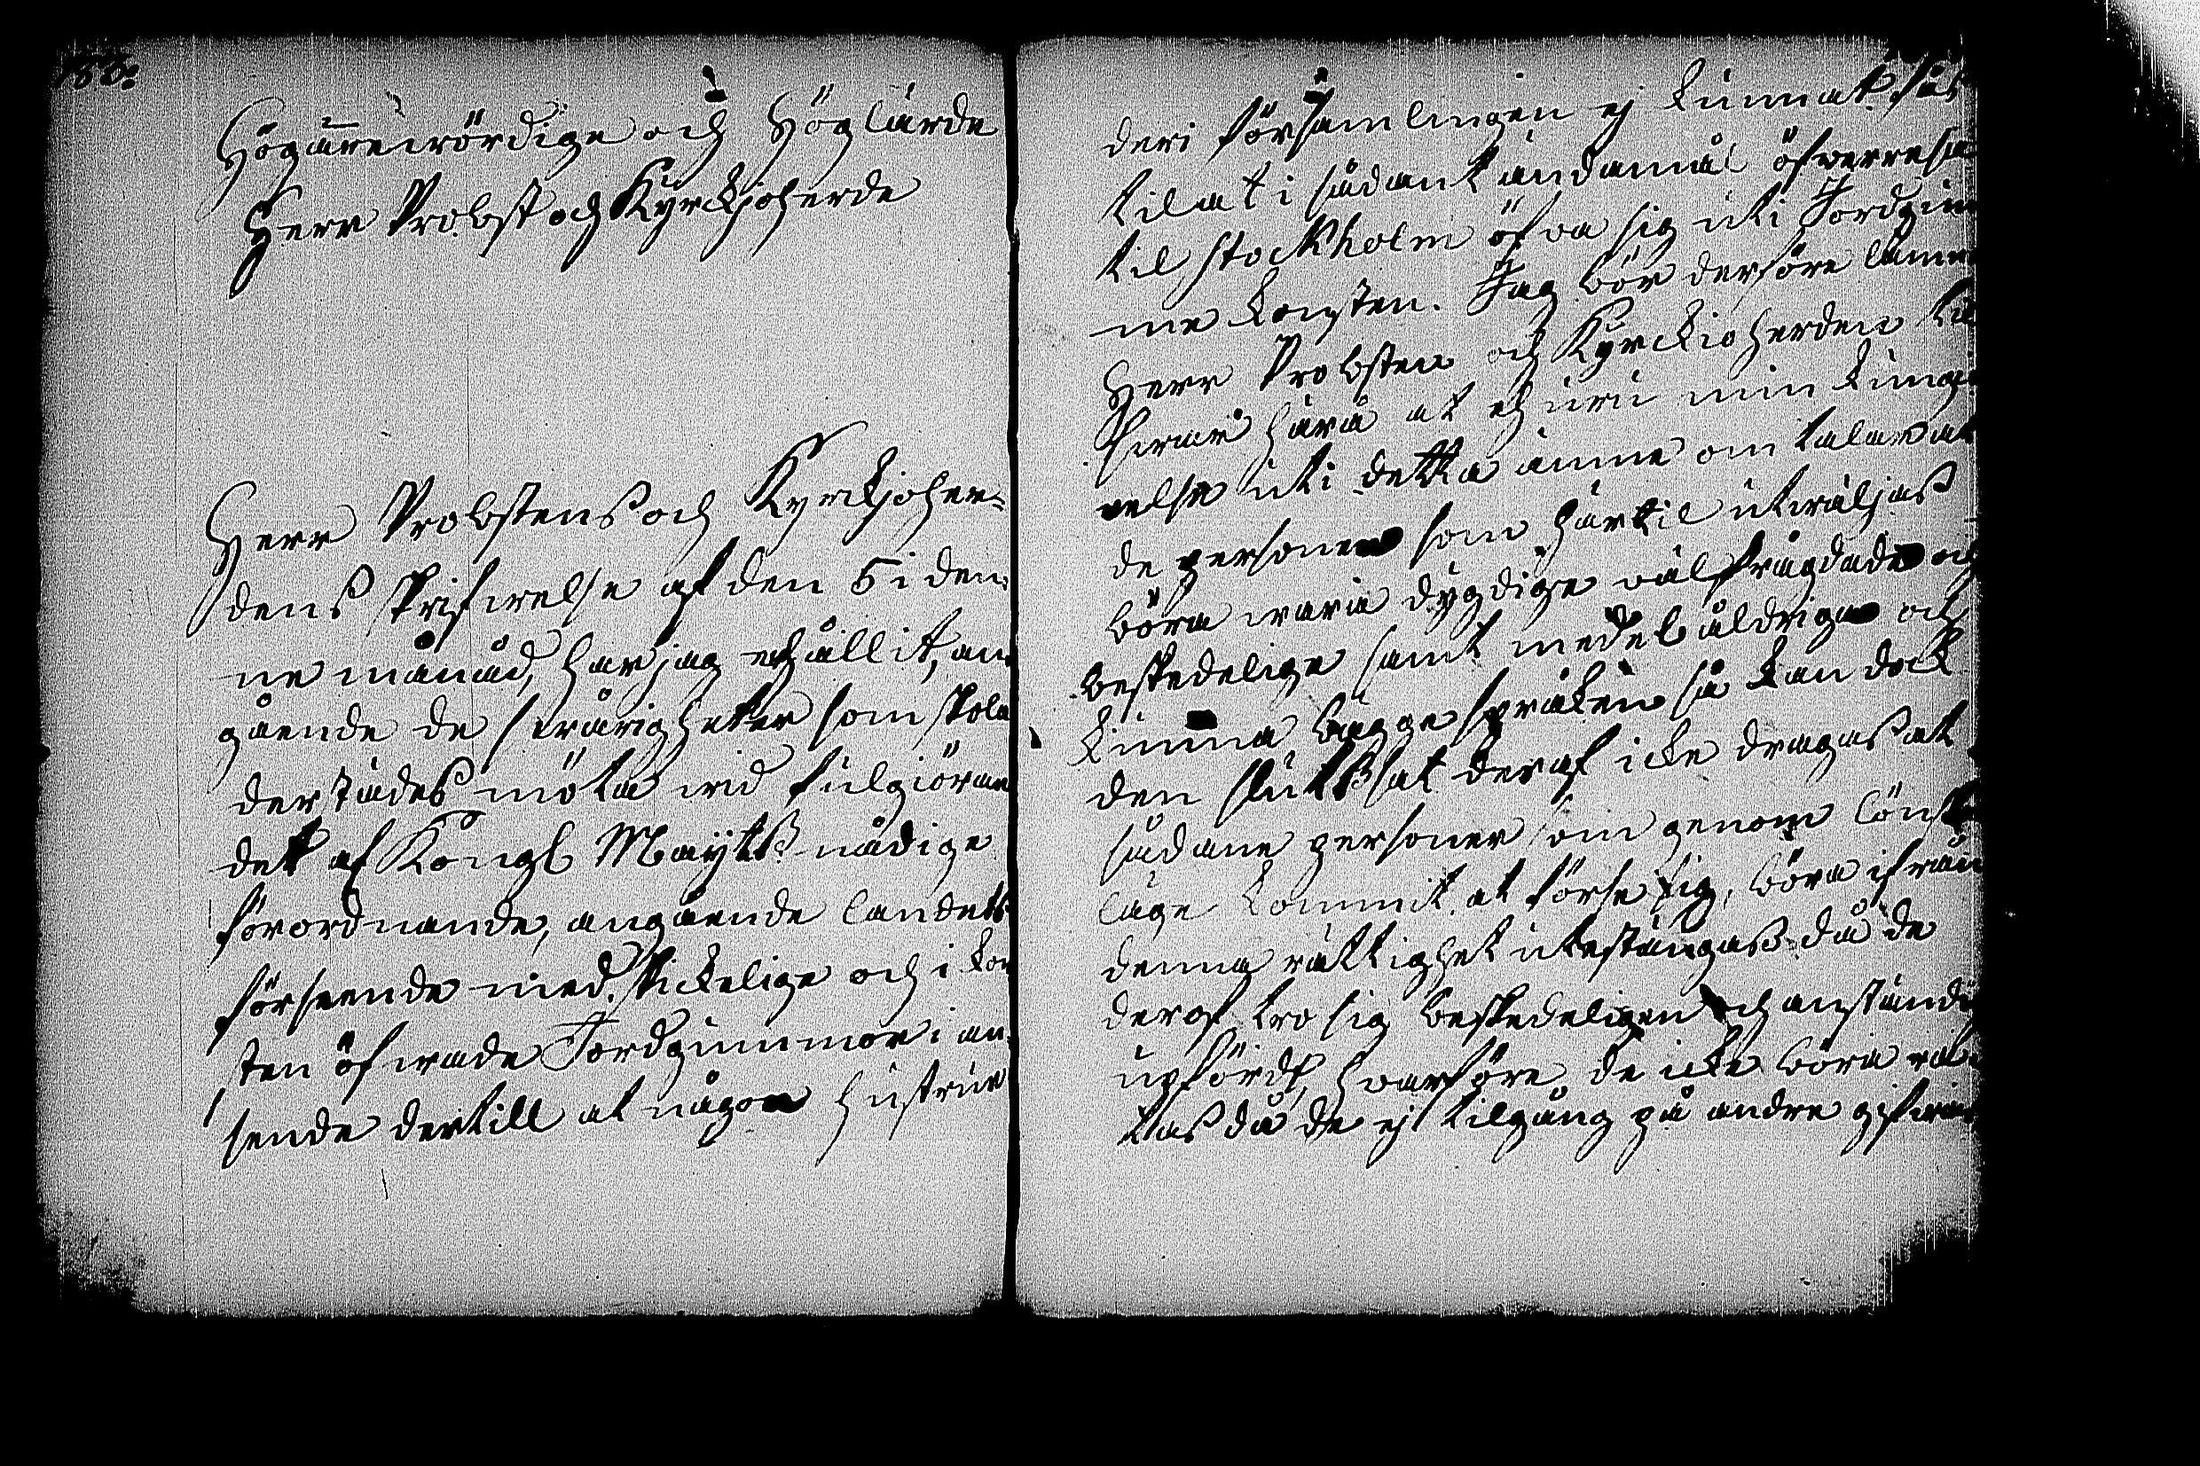 Högärewördige och Höglärde
Herr Probst och Kyrckjoherde
Herr Probstens och Kyrckjoher-
dens skrifwelse af den 5 i den-
ne månad, har jag erhållit, an-
gående de swårigheter som skola
derstädes möta wid fulgiöran
det af Kongl Maytts nådige
förordnande, angående landets
förseende med skickelige och i kon
sten öfwade Jordgummor i an-
seende dertill at någon hustru
deri församlingen ej kunnat
til at i sådant ändamål öfwerresa
til Stockholm öfwa sig uti Jordgum
me konsten. Jag bör derföre lämn
Herr Probsten och Kyrckioherden til
swar härå at ehuru min kungö
relse uti detta ämne om talar at
de personer som härtil utwäljas
böra wara dygdige wälfrägdade och
beskedelige samt medelåldrige och
kunna bägge språken så kan dock
den slutsat deraf icke dragas at
sådane personer som genom lönsk
läge kommit at förse sig, böra ifrån
denna rättighet utestängas då de
deraf tro sig beskedeligen och anständi
upfördt, hwarföre de icke böra
tas då de ej tilgång på andre